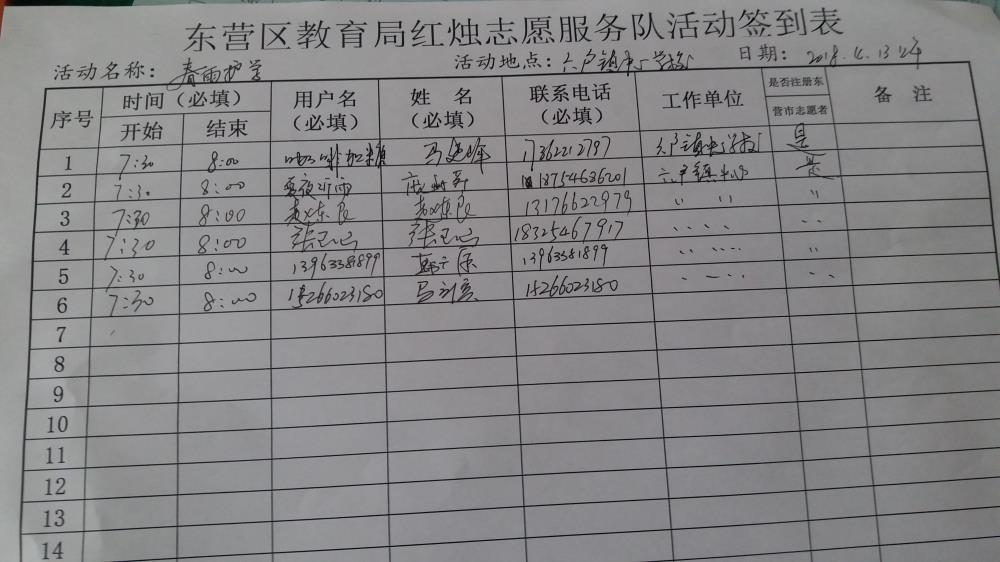 东营区教育局红烛志愿服务队活动签到表
活动名称：春雨护学 活动地点：六户镇中心学校 日期：2018.4.13
序号 时间（必填） 用户名（必填） 姓名（必填） 联系电话（必填） 工作单位 是否注册东营市志愿者 备注
开始 结束
1 7:30 8:00 马建峰 17362212797 六户镇中心学校 是
2 7:30 8:00 18754636201 六户镇 是
3 7:30 8:00 13176622979 〃 〃 〃
4 7:30 8:00 18325467917
5 7:30 8:00 13963381899 13963381899 〃
6 7:30 8:00 15266023180 15266023180
7
8
9
10
11
12
13
14